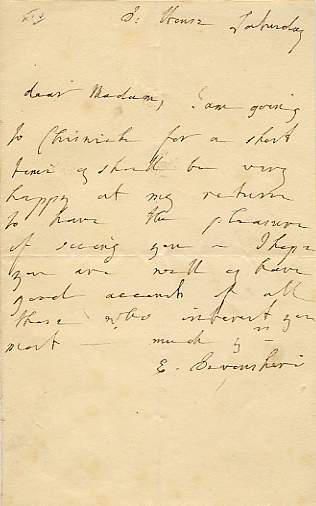 D: House Saturday
dear Madam, I am going
to Chiswick for a short
time & shall be very
happy at my return
to have the pleasure
of seeing you – I hope
you are well & have
good accounts of all
those who interest you
most — much yrs –
E. Devonshire